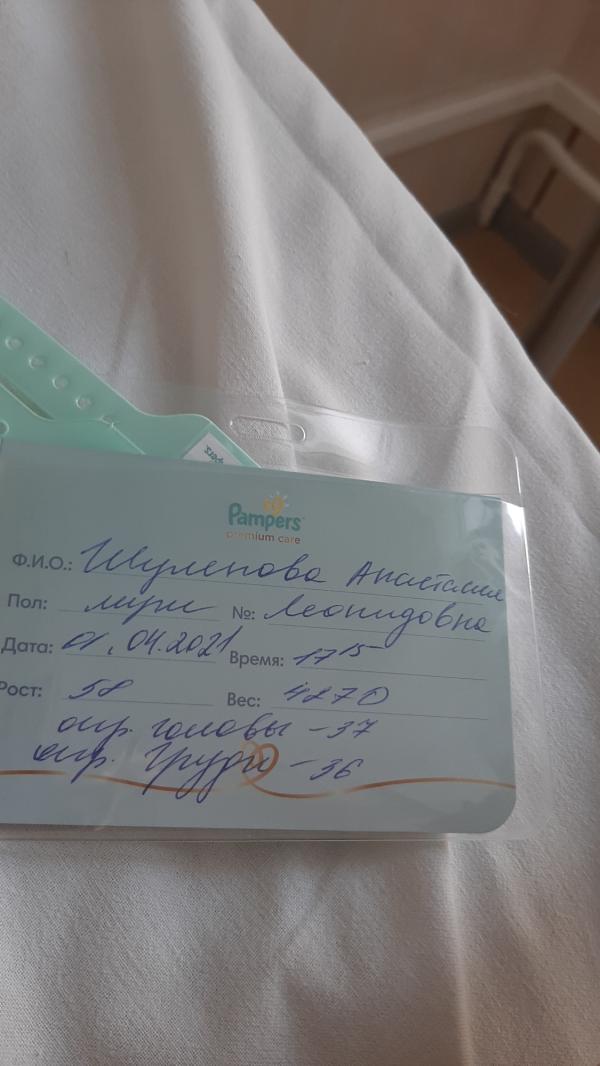 Pampers
premium care
Ф.И.О.: Шуленова Анастасия
Пол: муж №: Леонидовна
Дата: 01.04.2021 Время: 17 15
Рост: 58 Вес: 4270
окр. головы - 37
окр. груди - 36